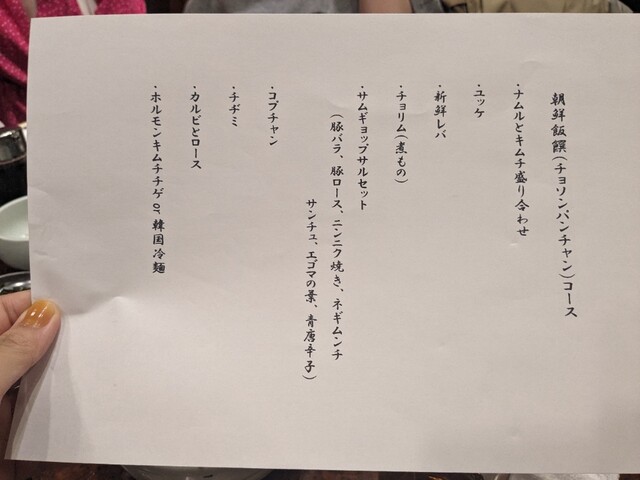 朝鮮飯饌(チョソンパンチャン)コース
・ナムルとキムチ盛り合わせ
・ユッケ
・新鮮レバ
・チョリム(煮もの)
・サムギョップサルセット
(豚バラ、豚ロース、ニンニク焼き、ネギムンチ
サンチュ、エゴマの葉、青唐辛子)
・コプチャン
・チヂミ
・カルビとロース
・ホルモンキムチチゲ or 韓国冷麺